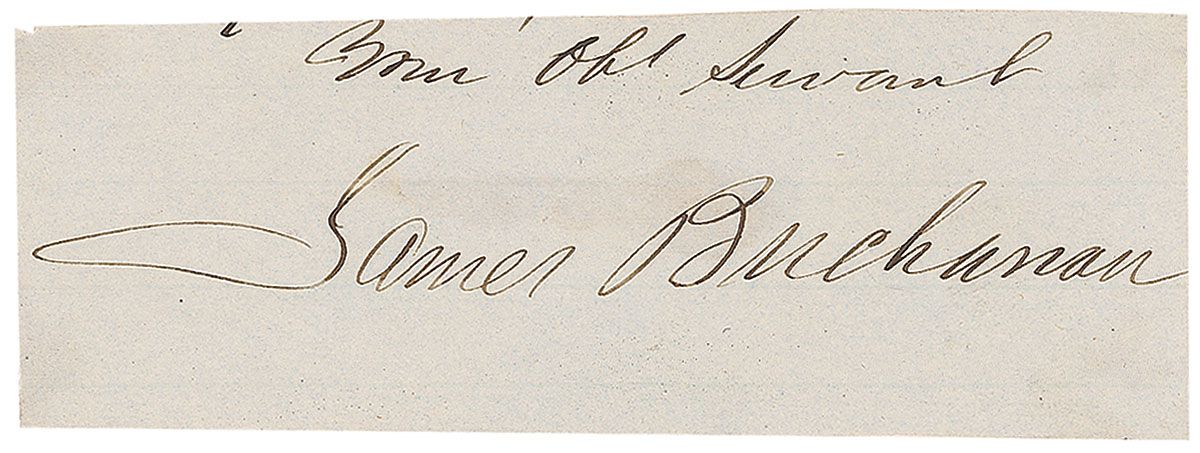 Your Obt Servant
James Buchanan